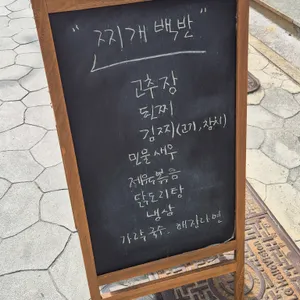 "찌개백반"
고추장
된찌
김찌(고기,참치)
민물새우
제육볶음
닭도리탕
냉삼
가락국수. 해진라면